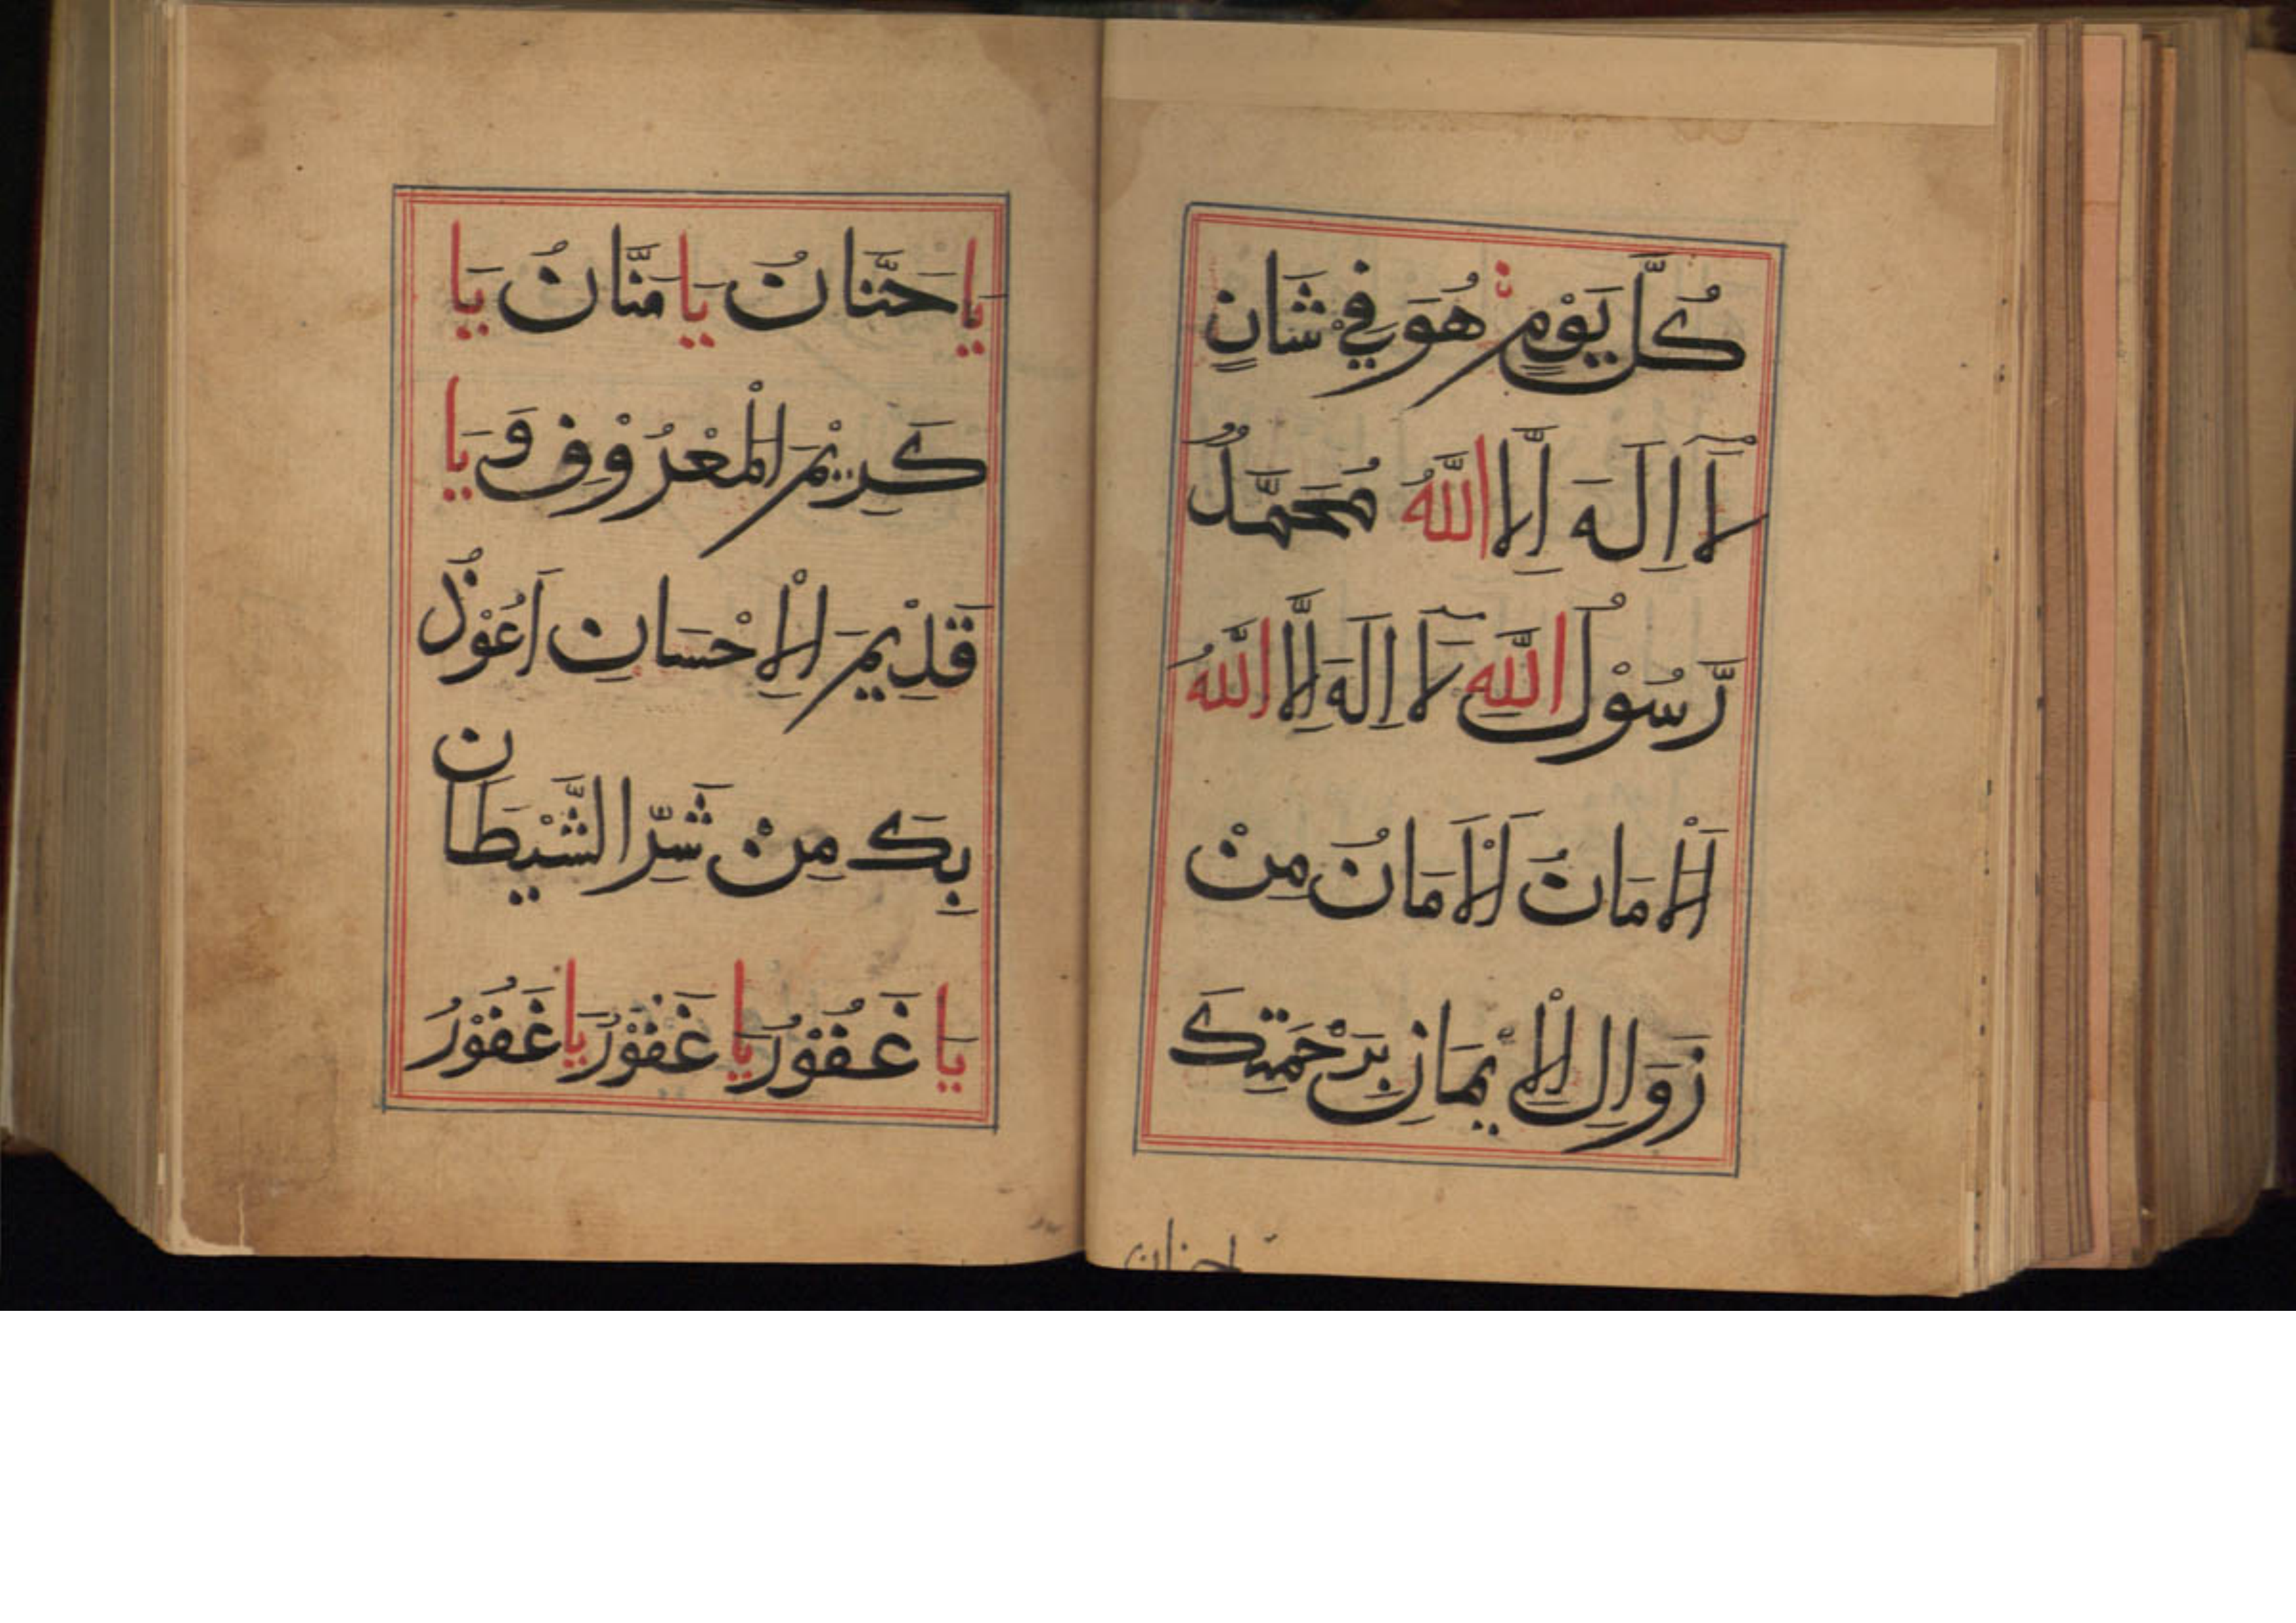 كُلَّ يَوْمٍ هُوَ فِيْ شَانٍ
لَآ اِلَهَ اِلَّا اللّٰهُ مُحَمَّدٌ
رَّسُوْلُ اللّٰهِ لَآ اِلَهَ اِلَّا اللّٰهُ
اَلْاَمَانُ اَلْاَمَانُ مِنْ
زَوَالِ الْاِيْمَانِ بِرَحْمَتِكَ
يَا حَنَّانُ يَا مَنَّانُ يَا
كَرِيْمَ الْمَعْرُوْفِ وَ يَا
قَدِيْمَ الْاِحْسَانِ اَعُوْذُ
بِكَ مِنْ شَرِّ الشَّيْطَانِ
يَا غَفُوْرُ يَا غَفُوْرُ يَا غَفُوْرُ